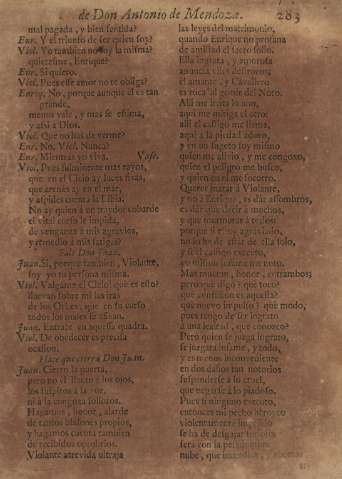 de Don Antonio de Mendoza. 283
mal pagada, y bien sentida?
Enr. Y el triunfo de ser quien soy?
Viol. Yo tambien no soy la misma?
quieresme, Enrique?
Enr. Si quiero.
Viol. Pues esse amor no te obliga?
Enriq. No, porque aunque el es tan
grande,
menos vale, y mas se estima,
y assi à Dios.
Viol. Que no has de verme?
Enr. No. Viol. Nunca?
Enr. Mientras yo viva. Vase.
Viol. Pues fulminente mas rayos,
que en el Cielo ay luces fixas,
que arenas ay en el mar,
y aspides cuenta la Libia.
No ay quien à un traydor cobarde
el vital curso le impida,
de venganza à mis agravios,
y remedio à mis fatigas?
Sale Don Juan.
Juan. Si, porque tambien, Violante,
soy yo tu persona misma.
Viol. Valgame el Cielo! que es esto?
lluevan sobre mi las iras
de los Orbes, que en su curso
todos los males se
Juan. Entrate en aquessa quadra.
Viol. De obedecer es precisa
ocasion.
Hace que cierra Don Juan.
Juan. Cierro la puerta,
pero no el llanto à los ojos,
los suspiros à la voz,
ni à la congoxa sollozos.
Hagamos, honor, alarde
de tantos blasones propios,
y hagamos cuenta tambien
de recibidos oprobrios.
Violante atrevida ultraja
las leyes del matrimonio,
quando Enrique no profana
de amistad el sacro solio.
Ella ingrata, y amorosa
anuncia viles destrozos;
el amante, y Cavallero
es roca al golfo del Noto.
Allì me irrita lo uno,
aqui me mitiga el otro,
allì el castigo me llama,
aqui à la piedad adoro,
y en un sugeto soy mismo
quien me alivio, y me congoxo,
quien el peligro me busco,
y quien en èl me socorro.
Querer matar à Violante,
y no à Enrique, es dar assombros,
es dàr que decir à muchos,
y que murmurar à todos:
porque si estoy agraviado,
no lo he de estàr de ella solo,
y si el castigo executo,
yo mismo infame me noto.
Mas mueran, honor, entrambos;
pero què digo? què toco?
què confusion es aquesta?
què nuevo impulso? què modo,
pues tengo de ser ingrato
à una lealtad, que conozco?
Pero quien se juzga ingrato,
se juzgarà infame, y todo,
y es menos inconveniente
en dos daños tan notorios
suspenderse à lo cruel,
que negarse à lo piadoso.
Pues si ninguno executo,
entonces mi pecho heroyco
violentamente
se ha de desgajar
serà con la
nube, que